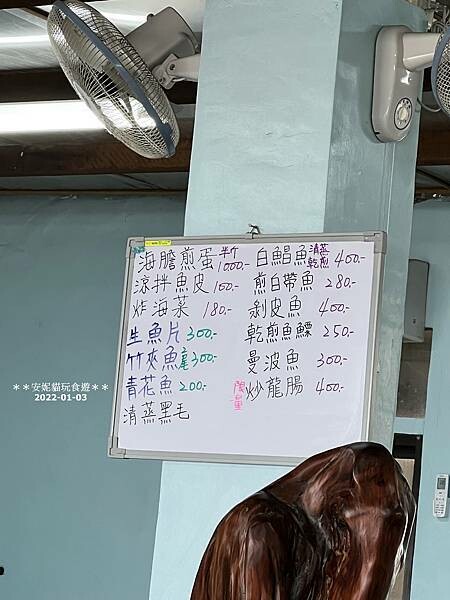 海膽煎蛋 半斤 1000.-
涼拌魚皮 100.-
炸海菜 180.-
生魚片 300.-
竹夾魚 300.-
青花魚 200.-
清蒸黑毛
白鯧魚 清蒸 乾煎 400.-
煎白帶魚 280.-
剝皮魚 400.-
乾煎魚鰾 250.-
曼波魚 300.-
限量 炒龍腸 400.-
**安妮貓玩食遊**
2022-01-03